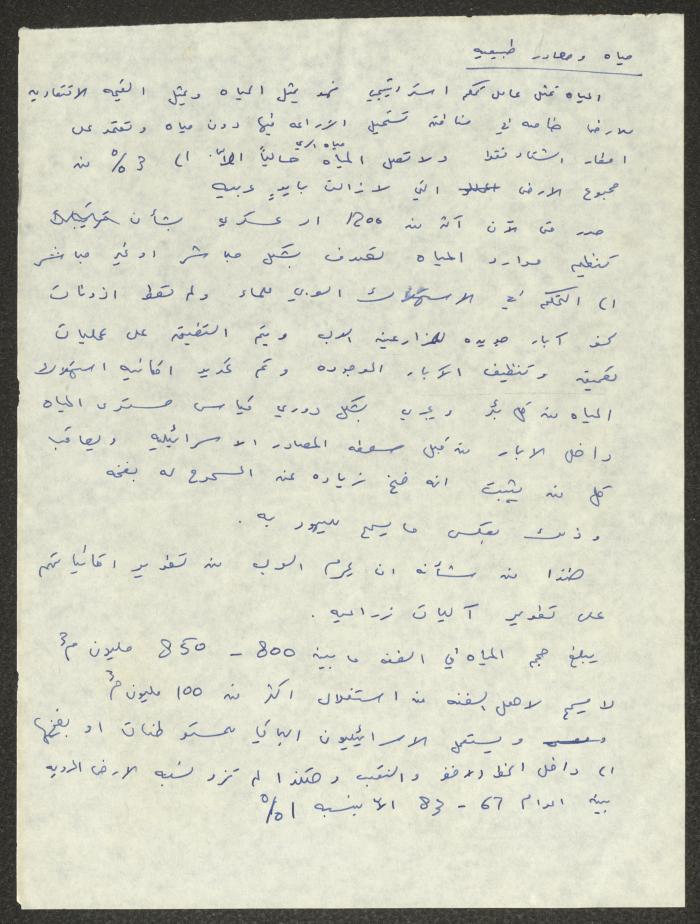 مياه ومصادر طبيعيه
المياه تمثل عامل تحكم استراتيجي فهو يمثل المياه ويمثل القيمه الاقتصاديه
للارض خاصه في مناطق تستحيل الزراعه فيها دون مياه وتعتمد على
امطار الشتاء فقط ولا تصل المياه مياه الري حالياً الاّ الى 3% من
مجموع الارض التي لا زالت بايدٍ عربيه
صدر حتى الآن اكثر من 1200 امر عسكري بشأن
تنظيم موارد المياه تهدف بشكل مباشر او غير مباشر
الى التحكم في الاستهلاك العربي للماء ولم تعط اذونات
لحفر آبار جديده للمزارعين العرب ويتم التضييق على عمليات
تعميق وتنظيف الآبار الموجوده وتم تحديد امكانيه استهلاك
المياه من كل بئر ويجري بشكل دوري قياس مستوى المياه
داخل الابار من قبل سلطه المصادر الاسرائيليه ويعاقب
كل من يثبت انه ضخ زياده عن المسموح له بضخه
وذلك بعكس ما يسمح لليهود به .
هذا من شأنه ان يحرم العرب من تطوير امكانياتهم
على تطوير آليات زراعيه .
يبلغ حجم المياه في الضفه ما بين 800 - 850 مليون م3
لا يسمح لاهل الضفه من استغلال اكثر من 100 مليون م3
ويستعمل الاسرائيليون الباقي بمستوطنات او بضخها
الى داخل الخط الاخضر والنقب وهكذا لم تزد نسبه الارض المرويه
بين اعوام 67 - 83 الاّ بنسبه 1%